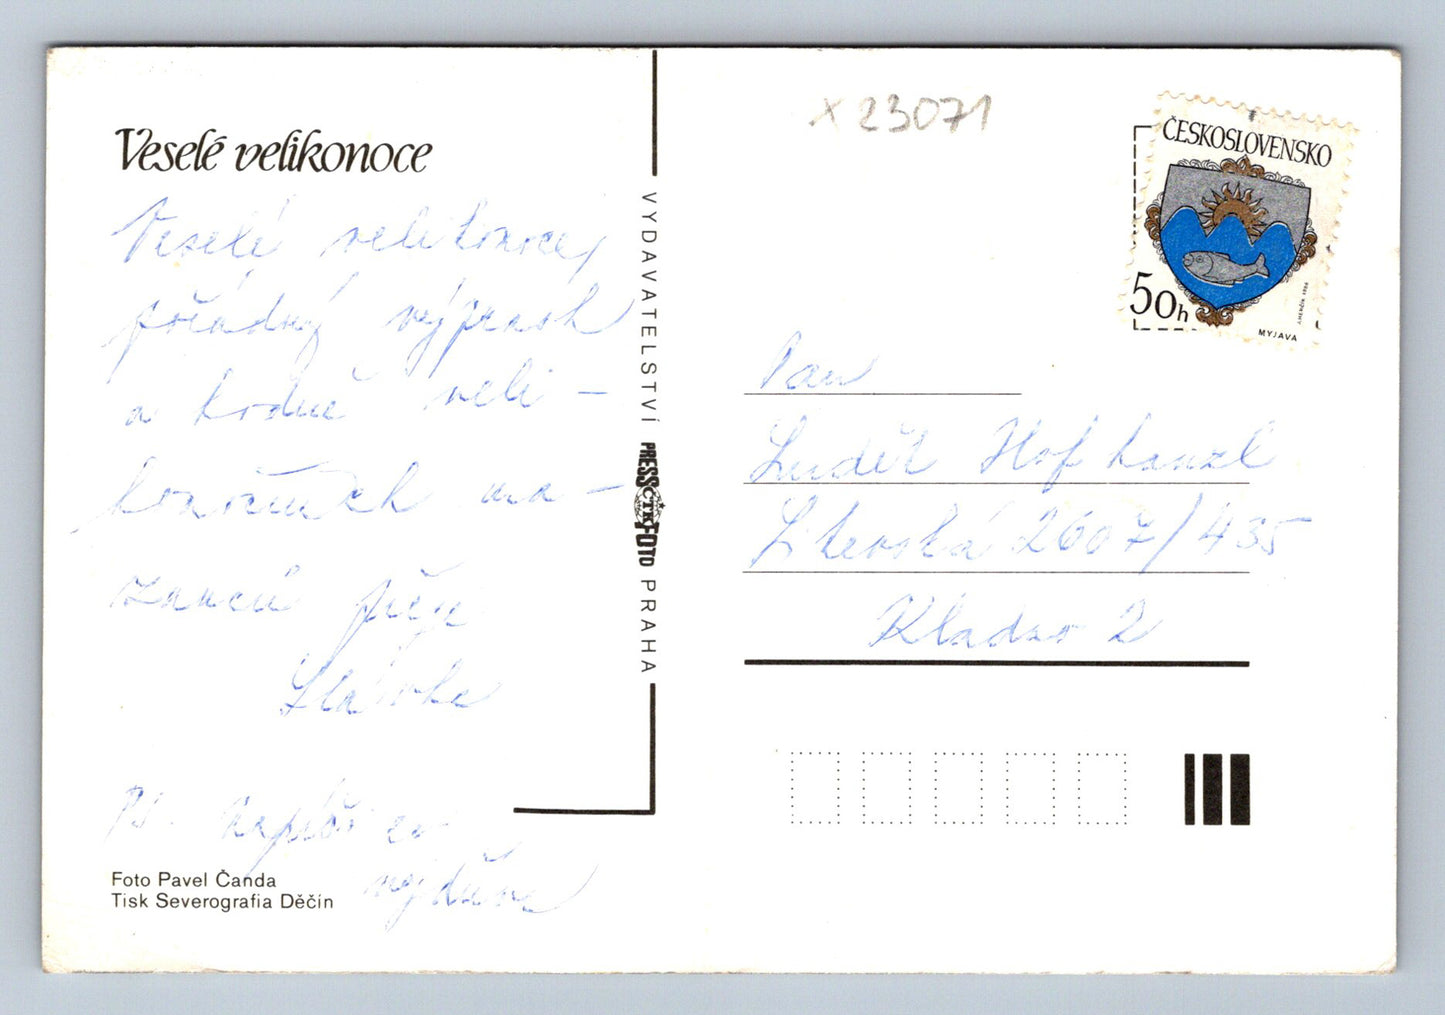 Veselé velikonoce
Veselé velikonoce,
pořádný výprask
a hodně veli-
konočních ma-
zanců přeje
Slávka
PS. napiš co
nejdříve
Foto Pavel Čanda
Tisk Severografia Děčín
VYDAVATELSTVÍ PRESSFOTO PRAHA
ČTK
x 23071
ČESKOSLOVENSKO
50h
MYJAVA
Pan
Luděk Hofhanzl
2607/435
Kladno 2